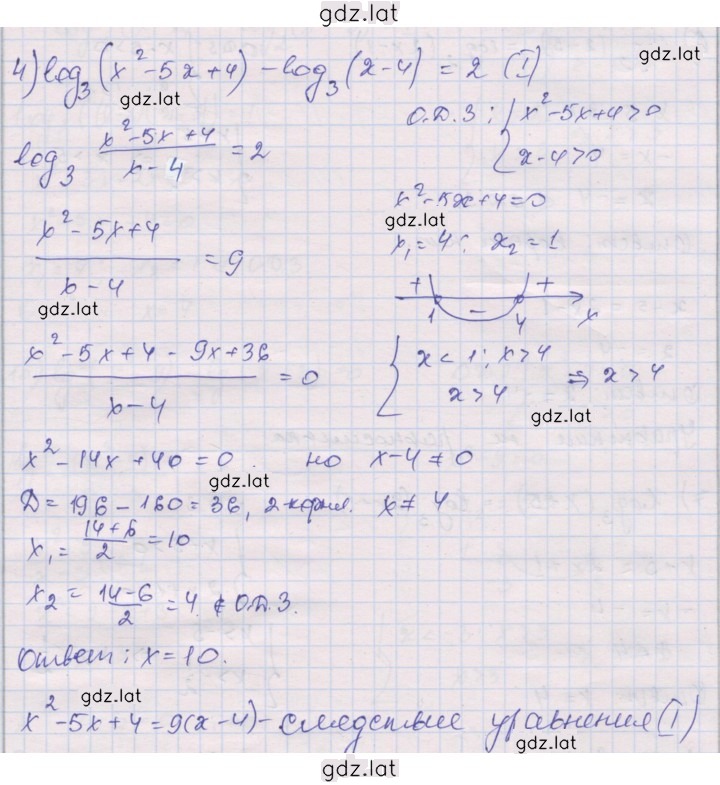 gdz.lat
4) log₃(x²-5x+4) - log₃(x-4) = 2 (I)
gdz.lat
gdz.lat
О.Д.З: { x²-5x+4>0
x-4>0
log₃ (x²-5x+4)/(x-4) = 2
x²-5x+4=0
gdz.lat
x₁=4; x₂=1
(x²-5x+4)/(x-4) = 9
gdz.lat
+ - +
1 4 x
{ x<1; x>4
x>4 ⇒ x>4
gdz.lat
(x²-5x+4-9x+36)/(x-4) = 0
x²-14x+40=0. но x-4≠0
gdz.lat
Д=196-160=36, 2 корня. x≠4
x₁=(14+6)/2=10
x₂=(14-6)/2=4 ∉ О.Д.З.
Ответ: x=10.
gdz.lat
x²-5x+4=9(x-4) - следствие уравнения (I)
gdz.lat
gdz.lat